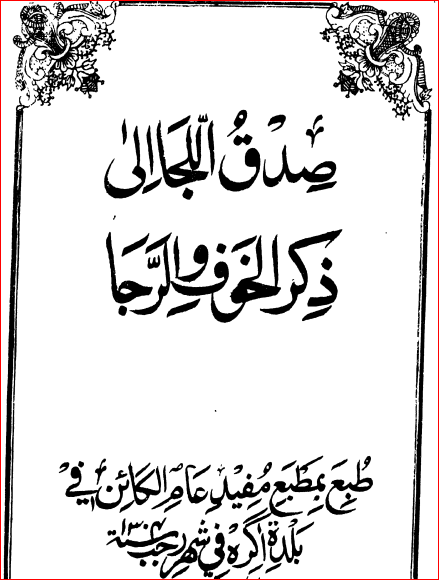 صِدْقُ اللَّجَا اِلیٰ
ذِكرِ الخَوفِ وَالرَّجَا
طُبِعَ بِمَطْبَعِ مُفِیدِ عَامِ الكَائِنِ فِیْ
بَلْدَةِ اٰگرَهْ فِیْ شَهْرِ رجب سنة ١٣٠٤